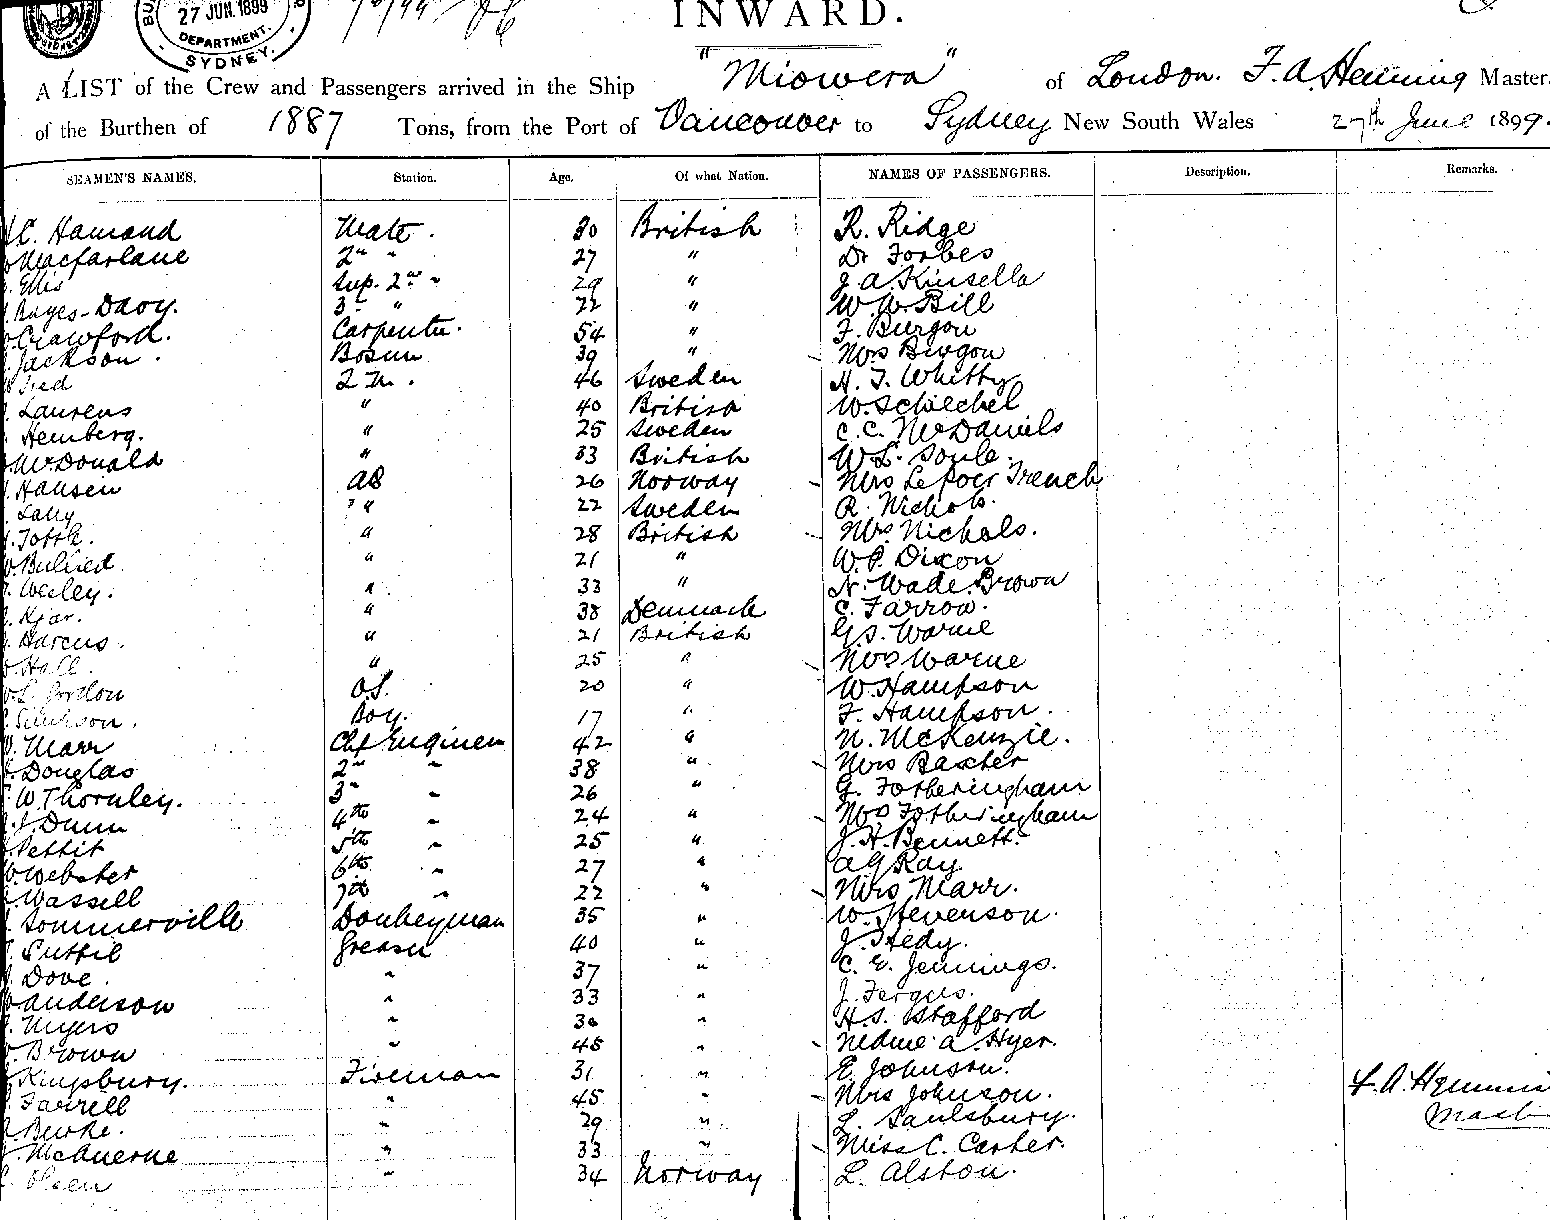 27 JUN. 1899
DEPARTMENT.
SYDNEY.
INWARD.
A LIST of the Crew and Passengers arrived in the Ship "Miowera" of London. F. A. Hemming Master.
of the Burthen of 1887 Tons, from the Port of Vancouver to Sydney New South Wales 27th June 1899.
SEAMEN'S NAMES. Station. Age. Of what Nation. NAMES OF PASSENGERS. Description. Remarks.
C. Hamand Mate. 30 British R. Ridge
Macfarlane 2nd " 27 " Dr Forbes
Ellis Sup. 2nd " 29 " J. A. Kinsella
Bayes-Davy. 3rd " 22 " W. W. Bill
Crawford. Carpenter. 54 " F. Burgon
Jackson. Bosun 39 " Mrs Burgon
2 M. 46 Sweden H. T. Whitty
Laurens " 40 British W. Schiechel
Hemberg. " 25 Sweden C. C. McDaniels
McDonald " 33 British W. L. Soule.
Hansen AB 26 Norway Mrs Le Poer Trench
Lally " 22 Sweden R. Nichols.
" 28 British Mrs Nichols.
" 21 " W. P. Dixon
Wesley. " 33 " N. Wade Brown
Kjar. " 38 Denmark C. Farrow.
Harcus. " 21 British G. S. Warne
Hall. " 25 " Mrs Warne
Gordon O.S. 20 " W. Hampson
Boy. 17 " F. Hampson.
Marr Chf Engineer 42 " N. McKenzie.
Douglas 2nd " 38 " Mrs Baxter
W. Thornley. 3rd " 26 " G. Fotheringham
J. Dunn 4th " 24 " Mrs Fotheringham
Pettit 5th " 25 " J. H. Bennett.
Webster 6th " 27 " A G Ray.
Wassell 7th " 22 " Mrs Marr.
Sommerville Donkeyman 35 " W. Stevenson.
Greaser 40 " J. Hedy.
Dove. " 37 " C. E. Jennings.
Anderson " 33 " J. Fergus.
Myers " 30 " H. S. Stafford
Brown " 45 " A. Hyer.
Kingsbury. Fireman 31 " E. Johnson.
Farrell " 45 " Mrs Johnson.
Burke. " 29 " L. Saulsbury.
McAnerne " 33 " Miss C. Carter.
Olsen " 34 Norway L. Alston.
F. A. Hemming
Master